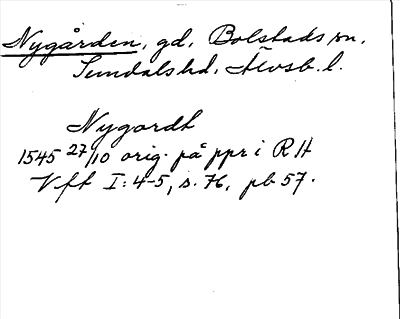 Nygården, gd, Bolstads sn,
Sundals hd, Älvsb. l.
Nygordh
1545 27/10 orig. på ppr i RA
Vft I: 4-5, s. 76, pb 57.